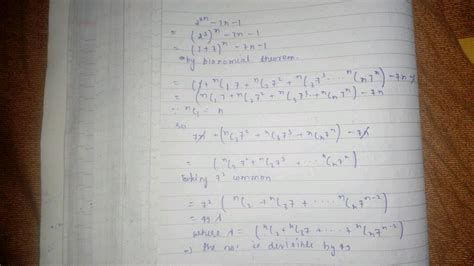 2^3n - 7n - 1
= (2^3)^n - 7n - 1
= (1+7)^n - 7n - 1
by binomial theorem.
= (1 + nC1 7 + nC2 7^2 + nC3 7^3 .... nCn 7^n) - 7n - 1
= (nC1 7 + nC2 7^2 + nC3 7^3 .. + nCn 7^n) - 7n
∵ nC1 = n
so
7n + (nC2 7^2 + nC3 7^3 + nCn 7^n) - 7n
= (nC2 7^2 + nC3 7^3 + ... nCn 7^n)
Taking 7^2 common
= 7^2 (nC2 + nC3 7 + .... nCn 7^n-2)
= 49 λ
where λ = (nC2 + nC3 7 + ... + nCn 7^n-2)
⇒ the no. is divisible by 49